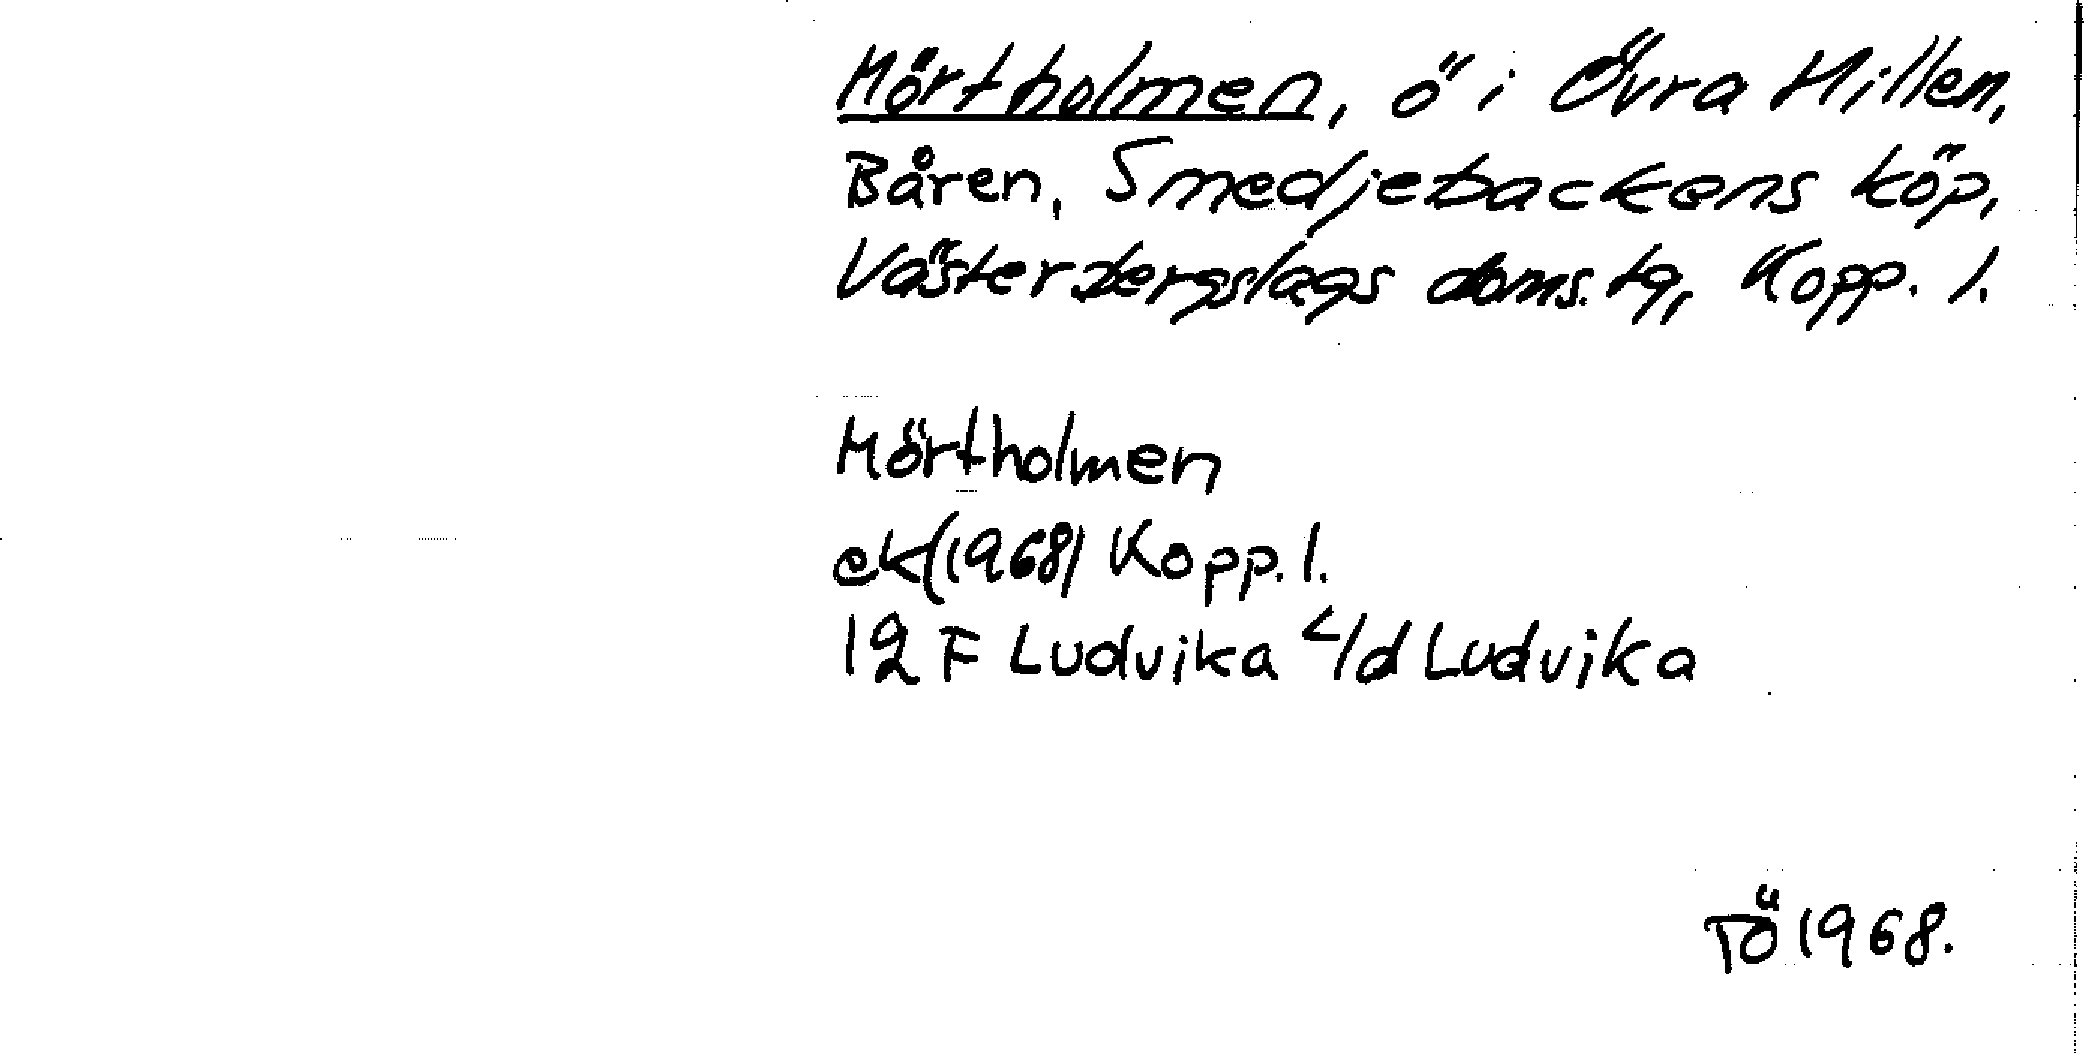 Mörtholmen, ö i Övra Hillen,
Båren, Smedjebackens köp,
Västerbergslags doms. tg, Kopp. l.
Mörtholmen
ek(1968) Kopp. l.
12 F Ludvika c/d Ludvika
TÖ 1968.